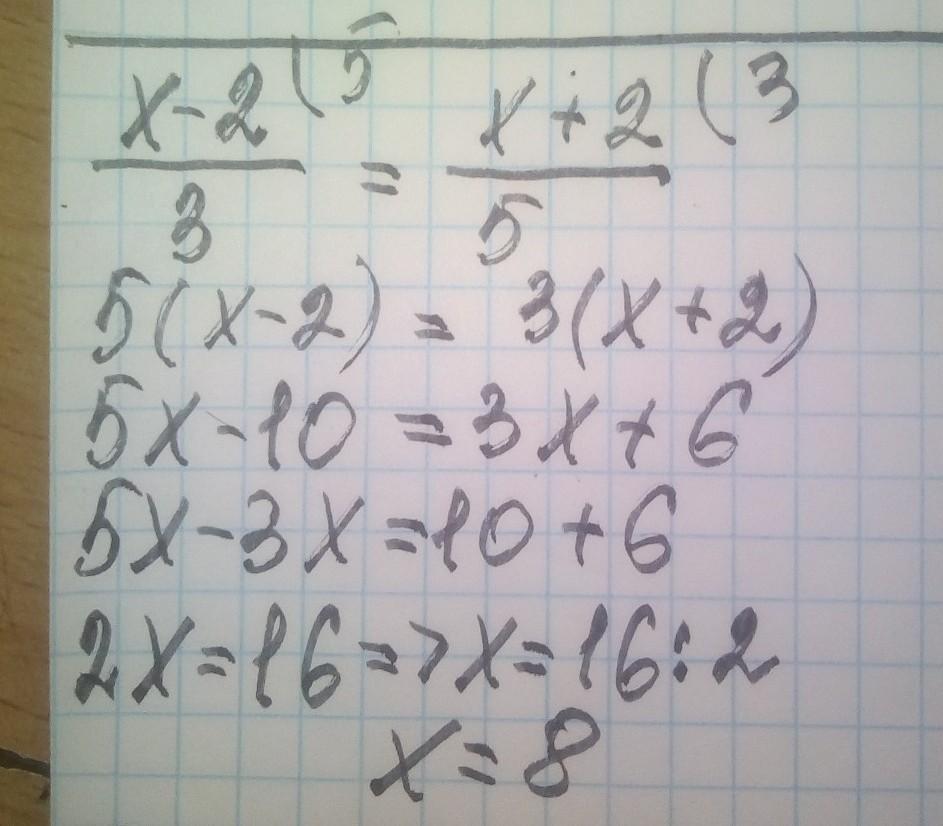 x-2 (5 = x+2 (3
3 5
5(x-2) = 3(x+2)
5x-10 = 3x+6
5x-3x=10+6
2x=16=>x=16:2
x=8